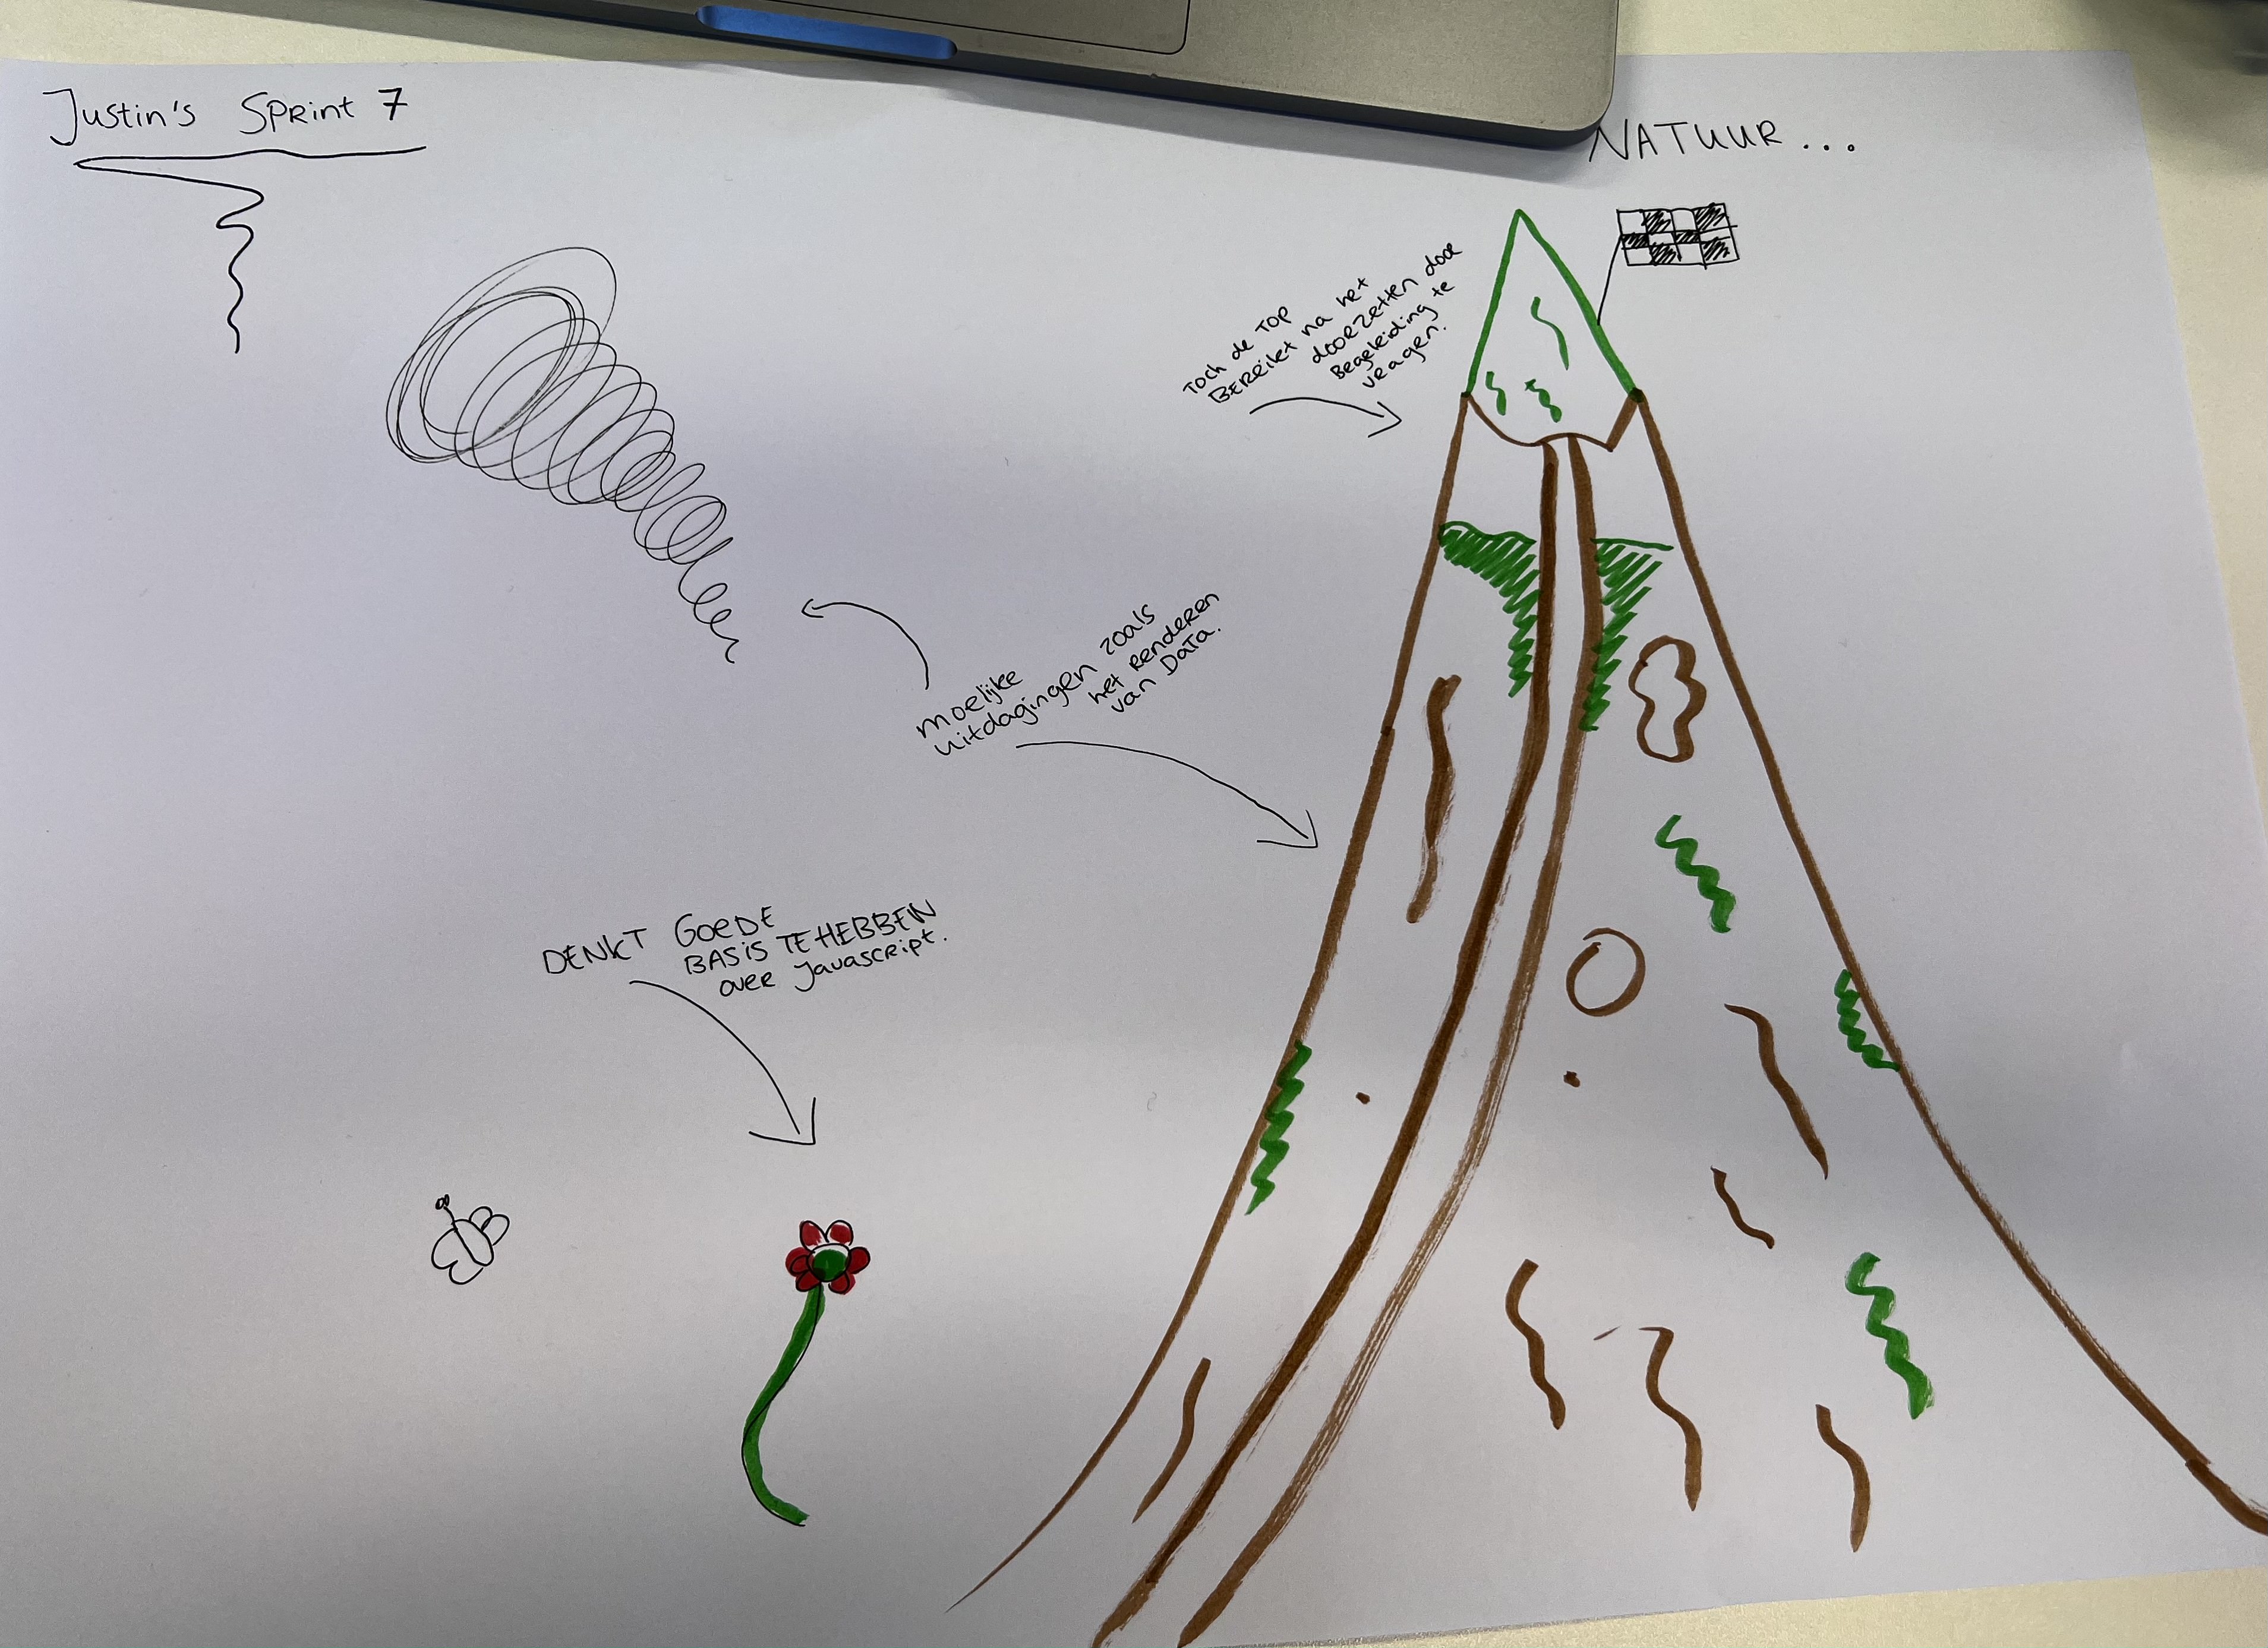 Justin's Sprint 7
NATUUR...
Toch de TOP
Bereikt na het
doorzetten door
Begeleiding te
vragen.
moeijke
uitdagingen zoals
het renderen
van Data.
DENKT GOEDE
BASIS TE HEBBEN
over Javascript.